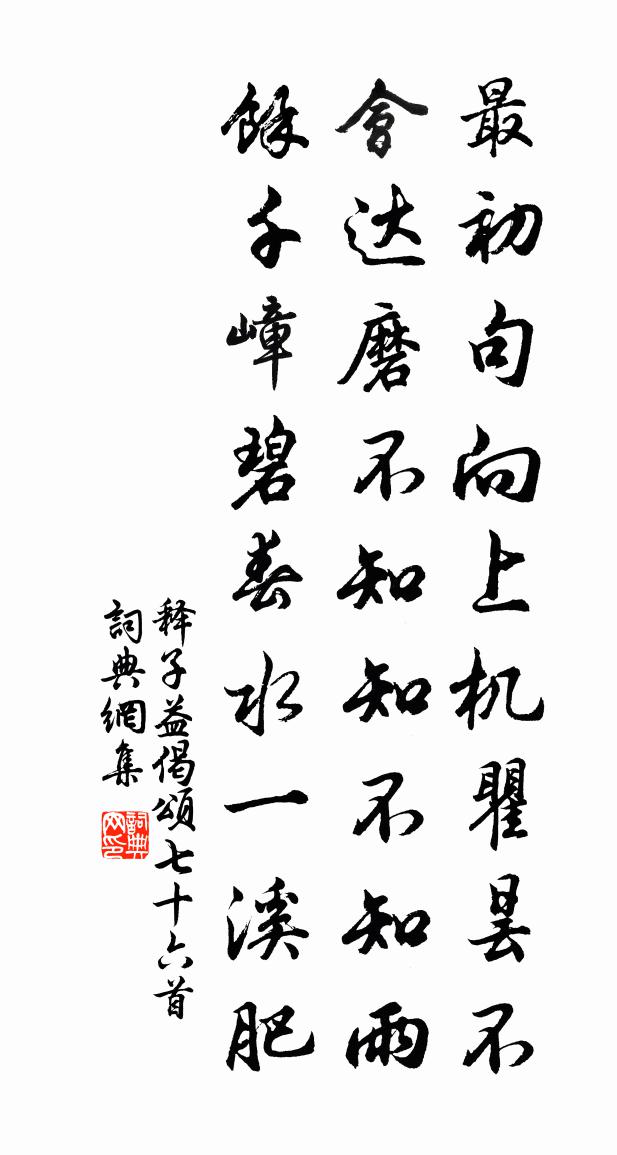 最初句向上机瞿昙不
會达磨不知知不知雨
餘千嶂碧春水一溪肥
释子益偈颂七十六首
詞典網集
詞典网印